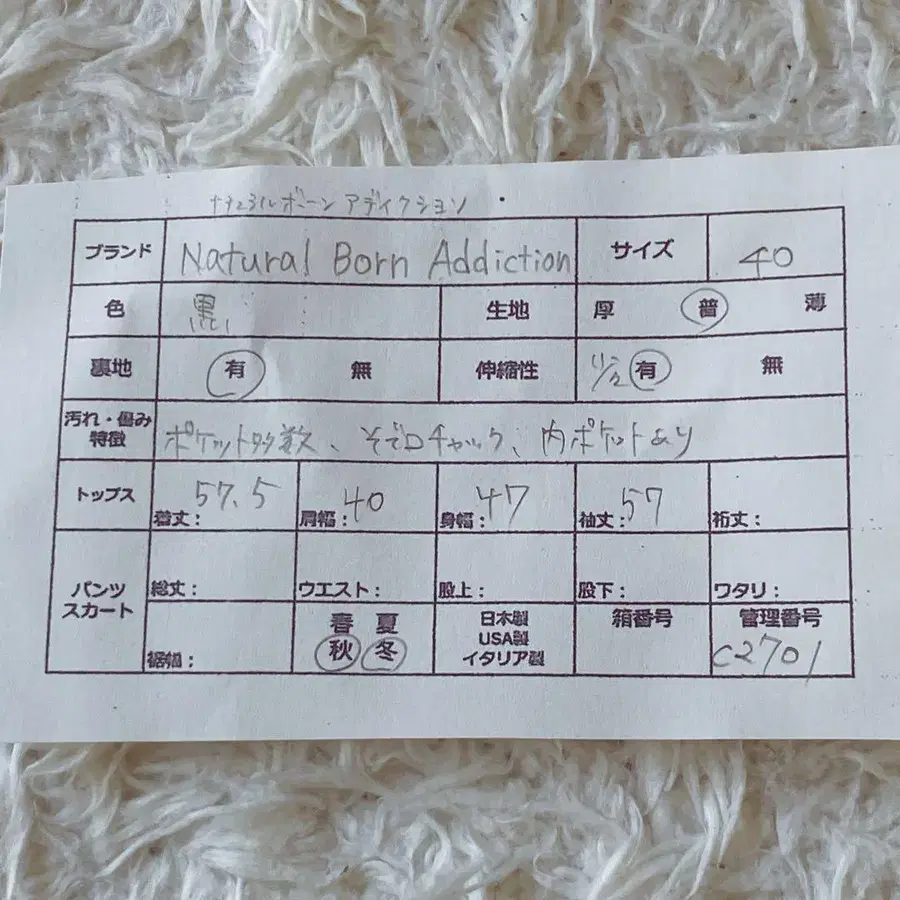 ナチュラルボーン アディクション
ブランド Natural Born Addiction サイズ 40
色 黒 生地 厚 普 薄
裏地 有 無 伸縮性 有 無
汚れ・傷み 特徴 ポケット多数、そで口チャック、内ポケットあり
トップス 着丈: 57.5 肩幅: 40 身幅: 47 袖丈: 57 裄丈:
パンツ スカート 総丈: ウエスト: 股上: 股下: ワタリ:
裾幅: 春 夏 秋 冬 日本製 USA製 イタリア製 箱番号 管理番号 C2701